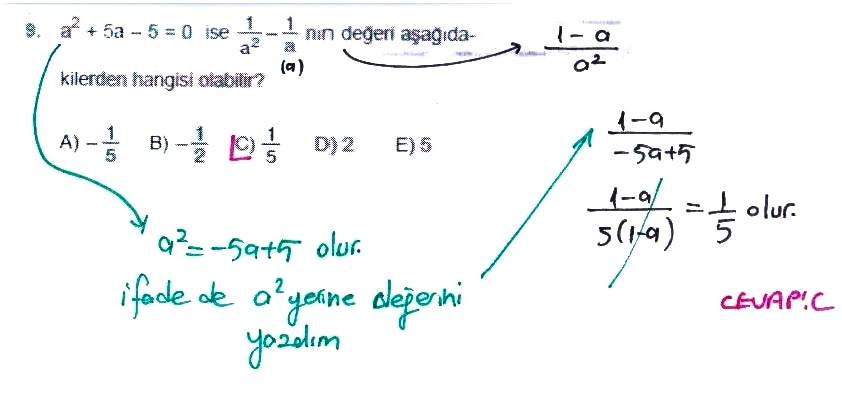 9. a² + 5a - 5 = 0 ise 1/a² - 1/a nın değeri aşağıda-
(a)
kilerden hangisi olabilir?
A) -1/5 B) -1/2 C) 1/5 D) 2 E) 5
a² = -5a+5 olur.
ifade de a² yerine değerini
yazdım
1-a/a²
1-a/-5a+5
1-a/5(1-a) = 1/5 olur.
CEVAP: C